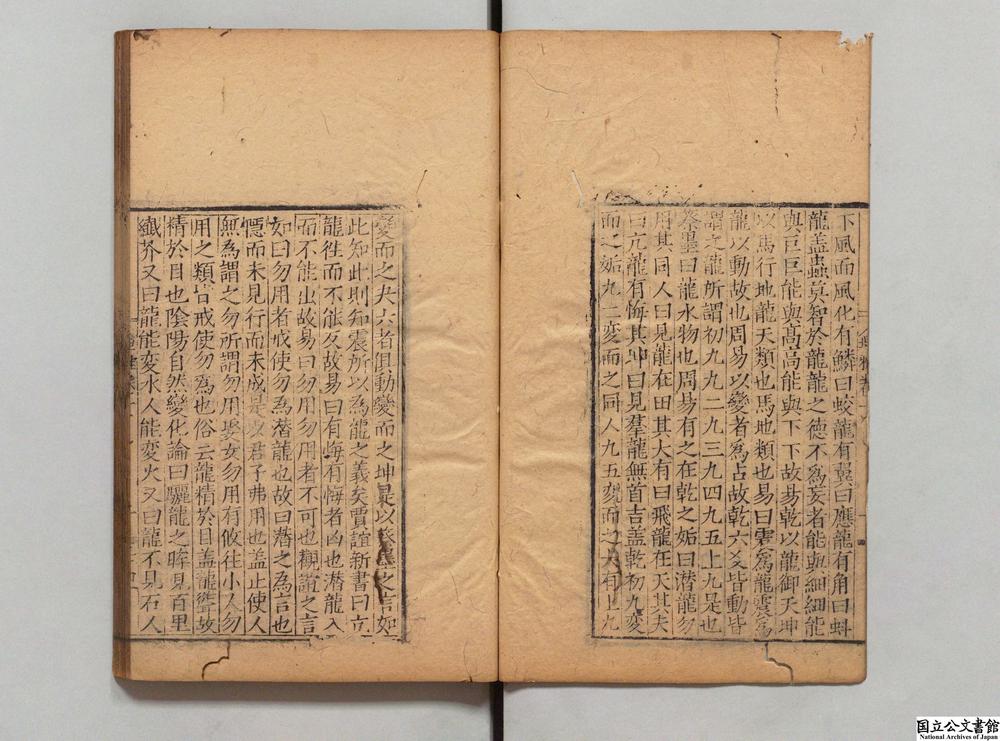 下風而風化有鱗曰蛟龍有翼曰應龍有角曰蚪
龍盖蟲莫智於龍龍之德不爲妄者能與細細能
與巨巨能與高高能與下下故易乾以龍御天坤
以馬行地龍天類也馬地類也易曰震爲龍震爲
龍以動故也周易以變者爲占故乾六爻皆動皆
謂之龍所謂初九九二九三九四九五上九是也
蔡墨曰龍水物也周易有之在乾之姤曰潜龍勿
用其同人曰見龍在田其大有曰飛龍在天其夬
曰亢龍有悔其坤曰見羣龍無首吉盖乾初九変
而之姤九二変而之同人九五変而之大有上九
變而之夬六者俱動變而之坤是以蔡墨之言如
此知此則知震所以為龍之義矣賈誼新書曰亢
龍徃而不能反故易曰有悔有悔者凶也潜龍入
而不能出故易曰勿用勿用者不可也觀誼之言
如曰勿用者戒使勿為潜龍也故曰潜之為言也
隱而未見行而未成是以君子弗用也盖止使人
無為謂之勿所謂勿用娶女勿用有攸往小人勿
用之類皆戒使勿為也俗云龍精於目盖龍聾故
精於目也陰陽自然變化論曰驪龍之眸見百里
纎芥又曰龍能変水人能変火又曰龍不見石人
国立公文書館
National Archives of Japan